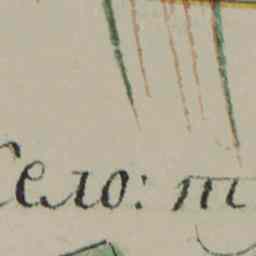 Село: т